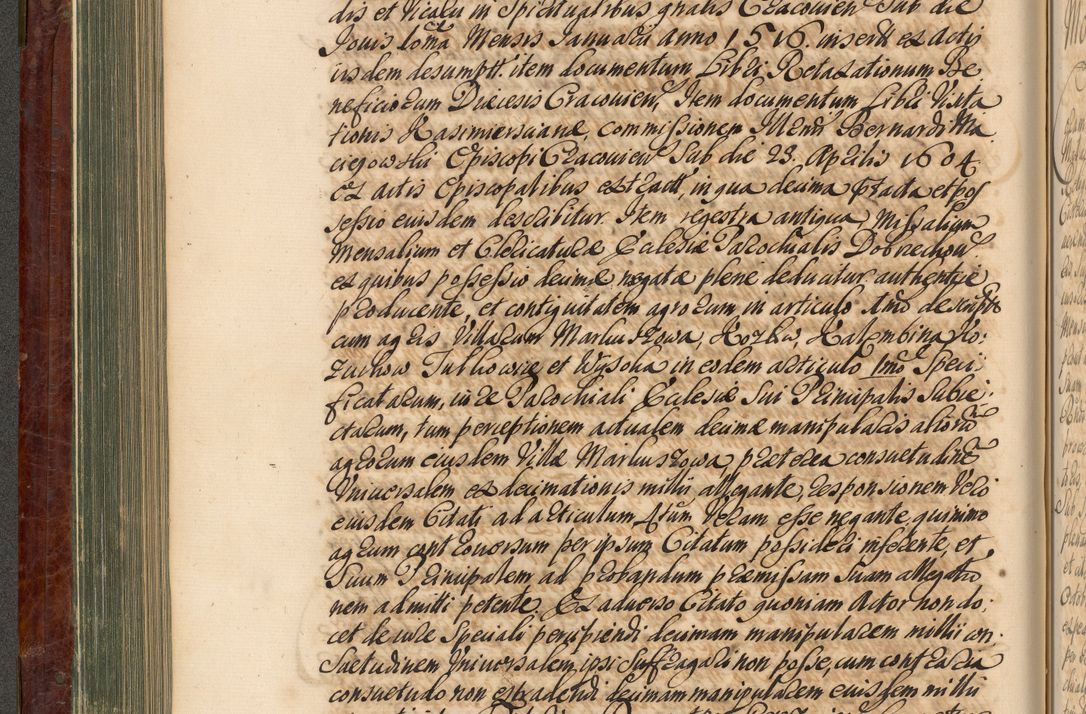 dis et Vicarii in Spiritualibus gnalis Cracovien Sub die
Jovis 10ma Mensis Januarii anno 1516. inserit ex actis
iisdem desumptt. item documentum Libri Retaxationum Be
neficiorum Diæcesis Cracovien, Item documentum Libri Visita
tionis Kasimiersciane, commissionem Illrmi Bernardi Ma
ciejowski Episcopi Cracovien Sub die 23. Aprilis 1604.
ex actis Episcopalibus extractt, in qua decima ptacta et pos
sessio eiusdem describitur. Item regestra antiqua Missalium
Mensalium et Clericaturæ Ecclesiæ Parochialis Dobrechow
ex quibus possessio decimæ negatæ plene deducitur authentice
producente, et contiguitatem agrorum, in articulo 1mo descripto
cum agris Villarum Markuszowa, Kozka, Kalembina, Ko:
zuchow Tulkowice et Wysoka in eodem articulo 1mo Speci
ficatarum, iure Parochiali Ecclesiæ Sui Principalis Subie:
ctarum, tum perceptionem actualem decimæ manipularis aliorum
agrorum eiusdem Villæ Markuszowa, præterea consuetudinem
Universalem ex decimationis milii, allegante, responsionem Vero
eiusdem Citati ad articulum 4tum Veram esse negante, quinimo
agrum controversum per ipsum Citatum possideri inferente, et
Suum Principalem ad probandum præmissam Suam allegatio
nem admitti petente. Ex adverso Citato quoniam Actor non do:
cet de iure Speciali percipiendi decimam manipularem milii con:
Suetudinem Universalem ipsi Suffragari non posse, cum contraria
consuetudo non extradendi decimam manipularem eiusdem milii